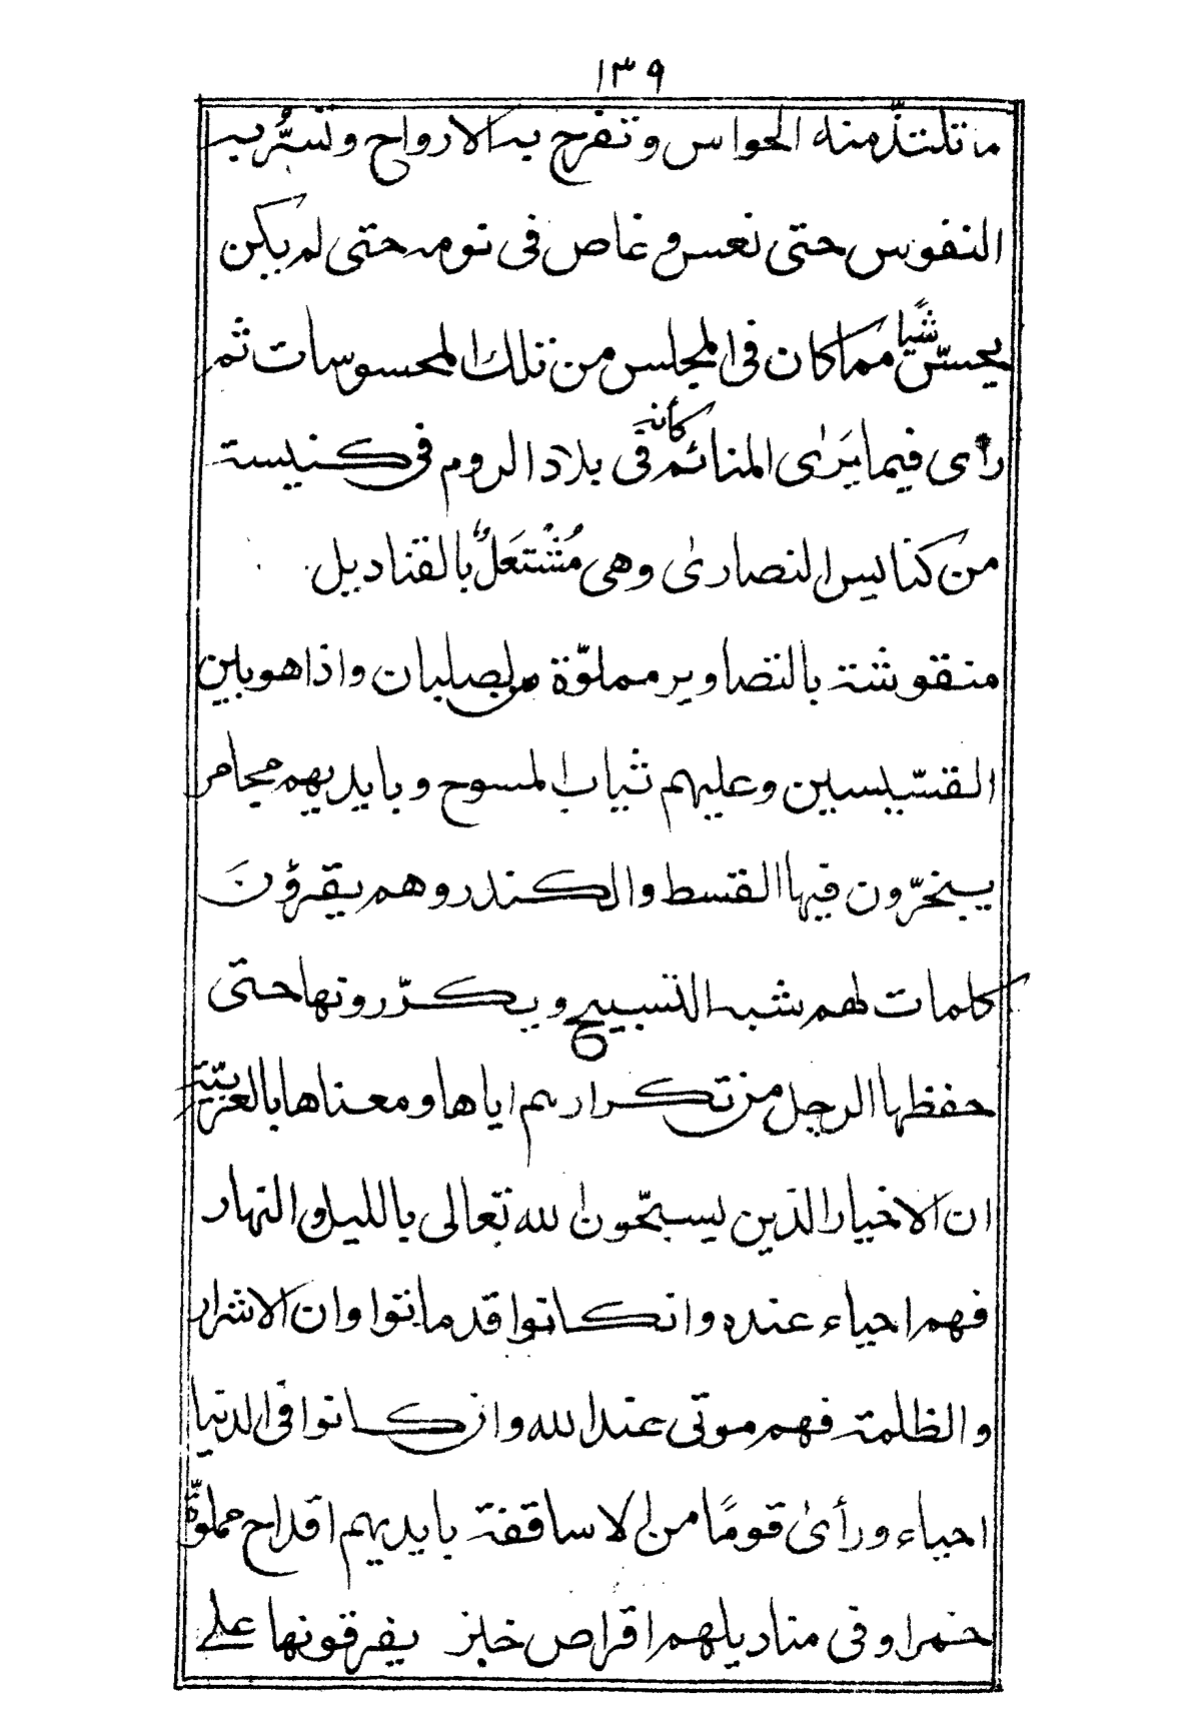 ١٣٩
ما تلتذّ منه الحواس وتفرح به الارواح وتسُرُّ به
النفوس حتى نعس و غاص فى نومه حتى لم يكن
يحسّ شيًا مما كان فى المجلس من تلك المحسوسات ثم
رأى فيما يَرىٰ المنائم كأنه فى بلاد الروم فى كنيسة
من كنايس النصارىٰ وهى مُشْتعَلٌ بالقناديل
منقوشة بالتصاوير مملوّة من لصلبان واذا هو بين
القسّيسين وعليهم ثياب المسوح و بايديهم مجامر
يبخرّون فيها القسط والكندر وهم يقرؤنَ
كلمات لهم شبه التسبيح ويكرّرونها حتى
حفظها الرجل من تكرارهم اياها ومعناها بالعربيّة
ان الاخيار الذين يسبّحون لله تعالى بالليل و النهار
فهم احياء عنده وان كانوا قد ماتوا وان الاشرار
والظلمة فهم موتى عند الله وان كانوا فى الدنيا
احياء ورأىٰ قومًا من الاساقفة بايديهم اقداح مملوّة
خمرا وفى مناديلهم اقراص خبز يفرقونها على